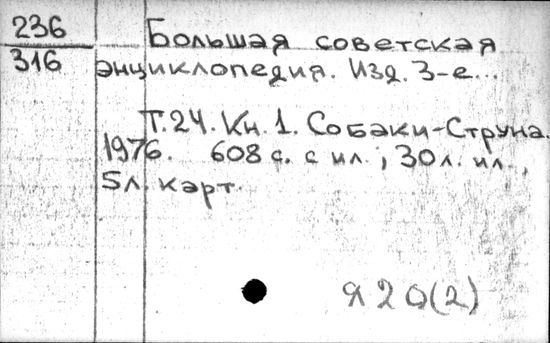 236
316
Большая советская
энциклопедия. Изд. 3-е...
Т.24. Кн. 1. Собаки-Струна.
1976. 608 с. с ил.; 30 л. ил.,
5 л. карт.
Я20(2)